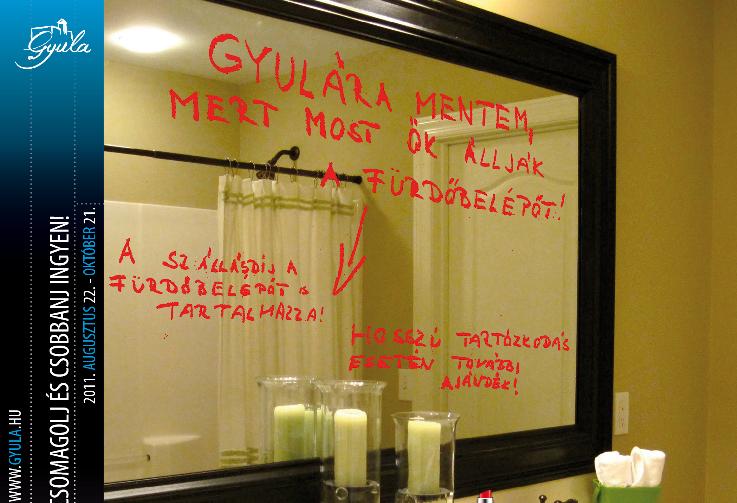 Gyula
GYULÁRA MENTEM,
MERT MOST ŐK ÁLLJÁK
A FÜRDŐBELÉPŐT!
A SZÁLLÁSDIJ A
FÜRDŐBELÉPŐT IS
TARTALMAZZA!
HOSSZÚ TARTÓZKODÁS
ESETÉN TOVÁBBI
AJÁNDÉK!
WWW.GYULA.HU
CSOMAGOLJ ÉS CSOBBANJ INGYEN!
2011. AUGUSZTUS 22. - OKTÓBER 21.